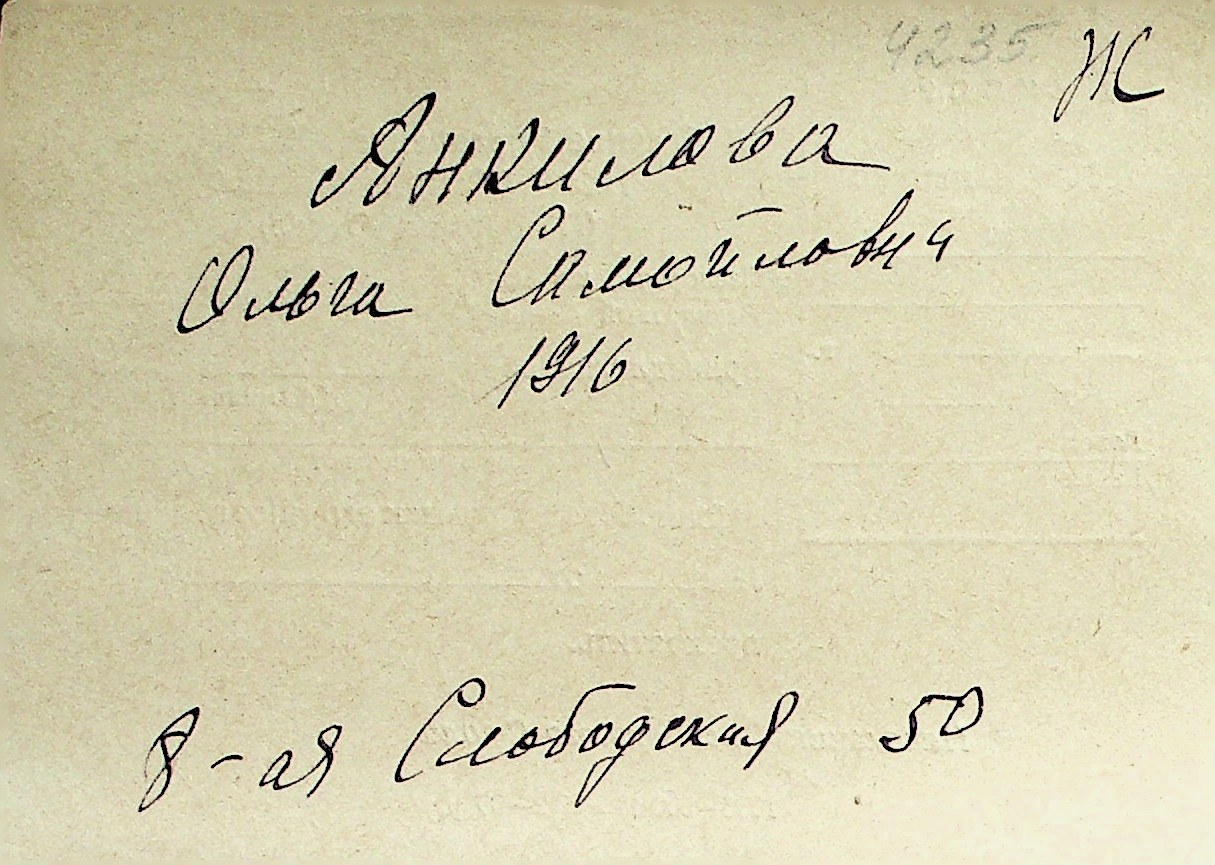 4235 Ж
Янкилова
Ольга Самойловна
1916
8-ая Слободская 50